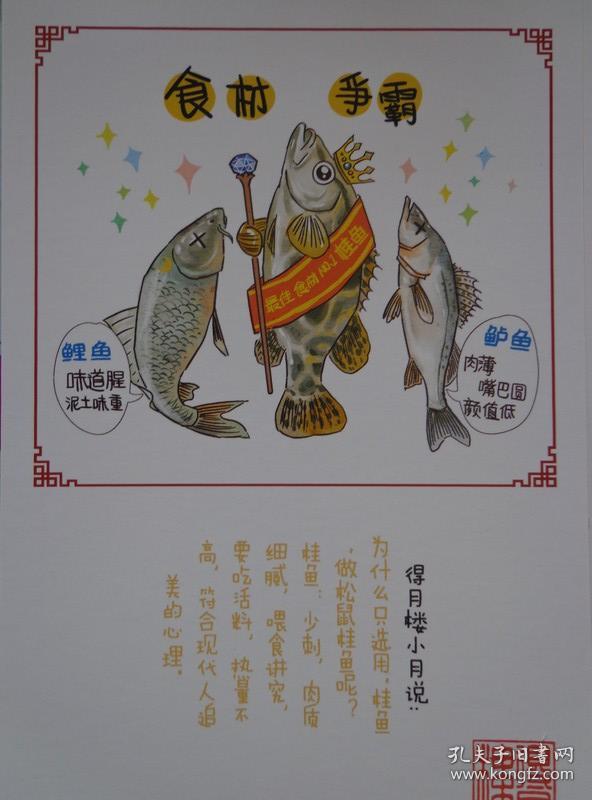 食材 争霸
最佳食材 No.1 桂鱼
鲤鱼
味道腥
泥土味重
鲈鱼
肉薄
嘴巴圆
颜值低
得月楼小月说：
为什么只选用，桂鱼
，做松鼠桂鱼呢？
桂鱼：少刺，肉质
细腻，喂食讲究，
要吃活料，热量不
高，符合现代人追
美的心理。
孔夫子旧书网
www.kongfz.com